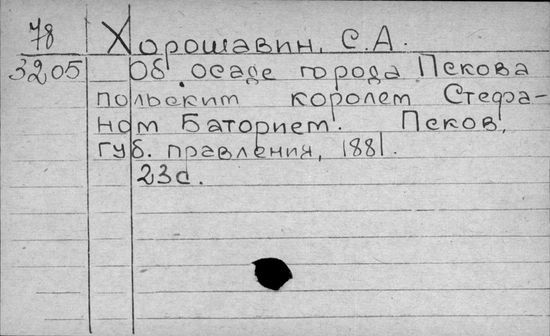 78 Хорошавин, С.А.
3205 Об осаде города Пскова
польским королем Стефа-
ном Баторием. Псков,
губ. правления, 1881.
23с.